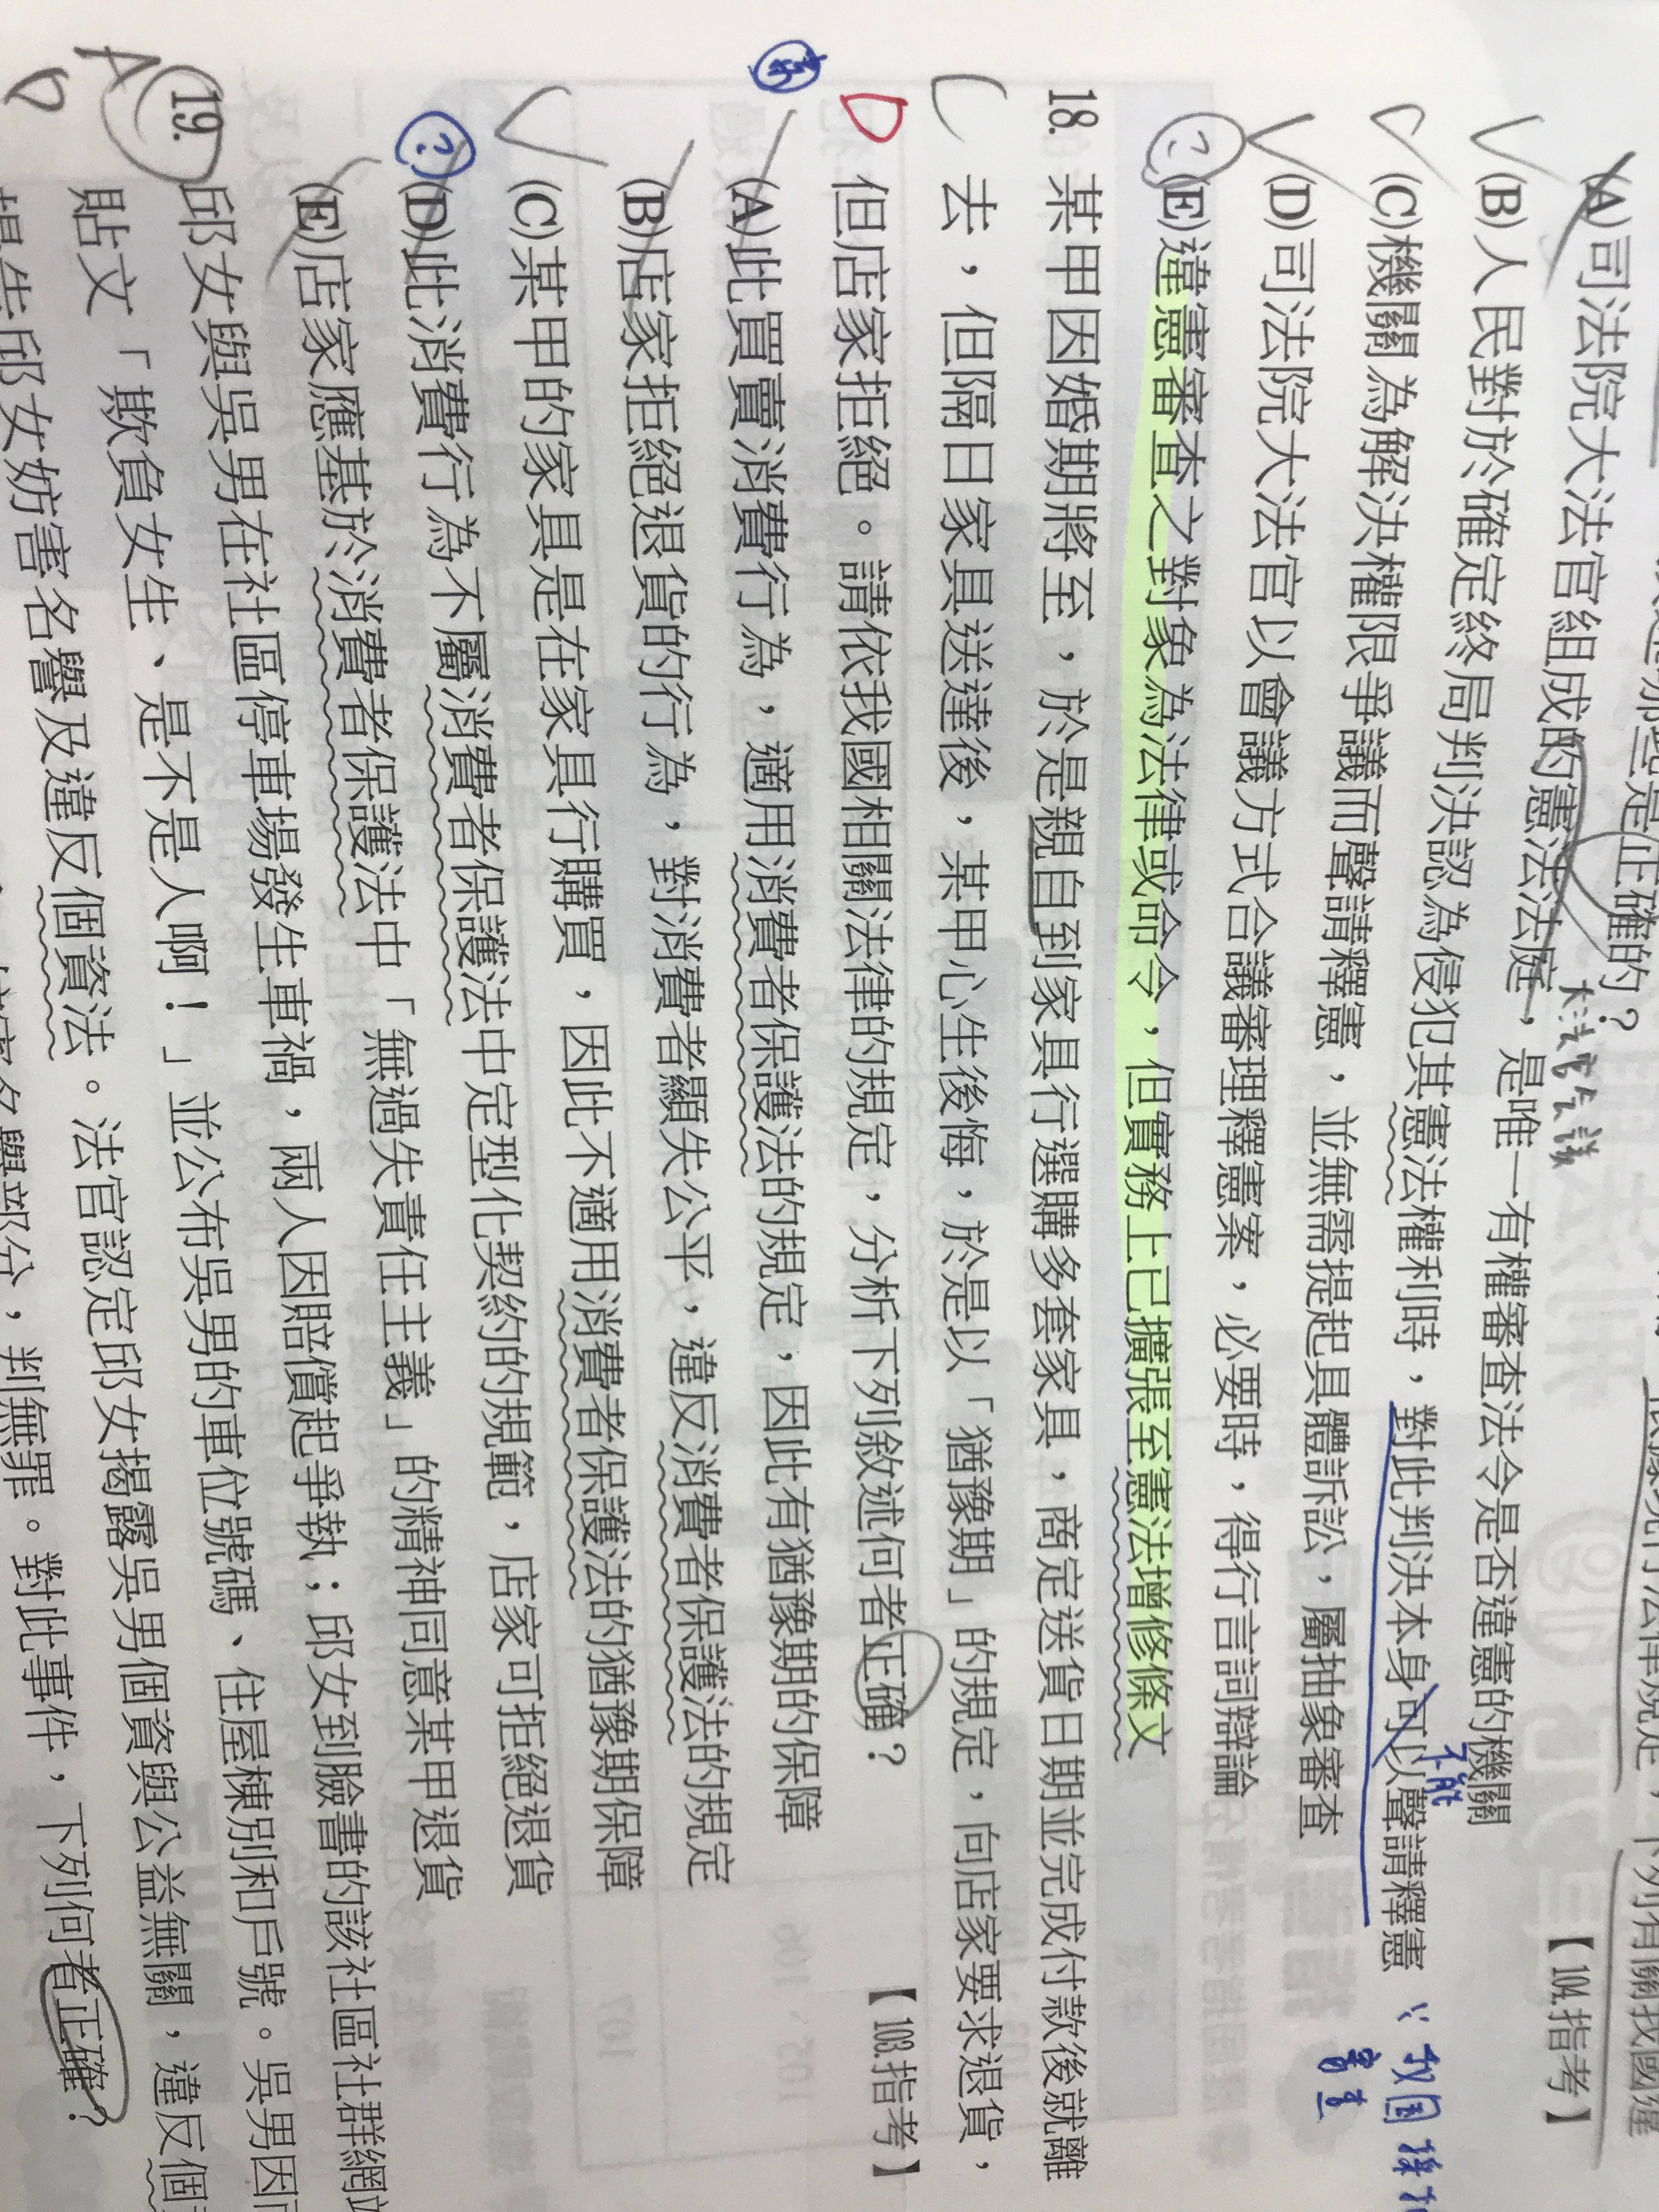 是正確的？
下列有關我國
【104.指考】
(A)司法院大法官組成的憲法法庭，是唯一有權審查法令是否違憲的機關
大法官會議
(B)人民對於確定終局判決認為侵犯其憲法權利時，對此判決本身可以聲請釋憲
不能
(C)機關為解決權限爭議而聲請釋憲，並無需提起具體訴訟，屬抽象審查
(D)司法院大法官以會議方式合議審理釋憲案，必要時，得行言詞辯論
?
(E)違憲審查之對象為法律或命令，但實務上已擴張至憲法增修條文
18. 某甲因婚期將至，於是親自到家具行選購多套家具，商定送貨日期並完成付款後就離
去，但隔日家具送達後，某甲心生後悔，於是以「猶豫期」的規定，向店家要求退貨，
但店家拒絕。請依我國相關法律的規定，分析下列敘述何者正確？
【103.指考】
D
(A)此買賣消費行為，適用消費者保護法的規定，因此有猶豫期的保障
(B)店家拒絕退貨的行為，對消費者顯失公平，違反消費者保護法的規定
(C)某甲的家具是在家具行購買，因此不適用消費者保護法的猶豫期保障
?
(D)此消費行為不屬消費者保護法中定型化契約的規範，店家可拒絕退貨
(E)店家應基於消費者保護法中「無過失責任主義」的精神同意某甲退貨
19. 邱女與吳男在社區停車場發生車禍，兩人因賠償起爭執；邱女到臉書的該社區社群網
A
D
貼文「欺負女生、是不是人啊！」並公布吳男的車位號碼、住屋棟別和戶號。吳男因
提告邱女妨害名譽及違反個資法。法官認定邱女揭露吳男個資與公益無關，違反個
名譽部分，判無罪。對此事件，下列何者正確？